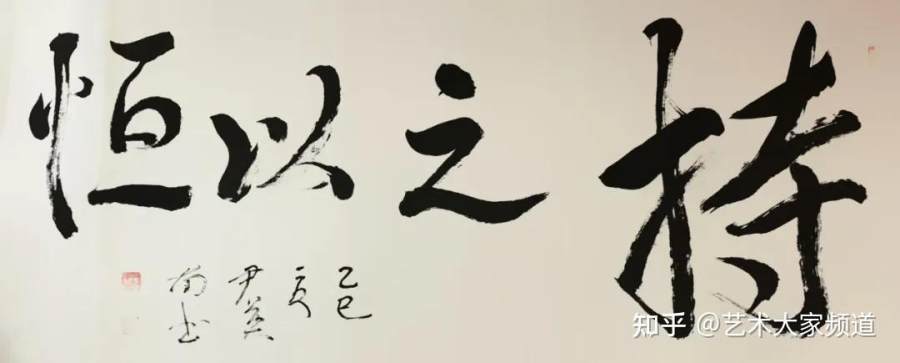 持之以恒
乙巳
夏
尹英
书
知乎 @艺术大家频道